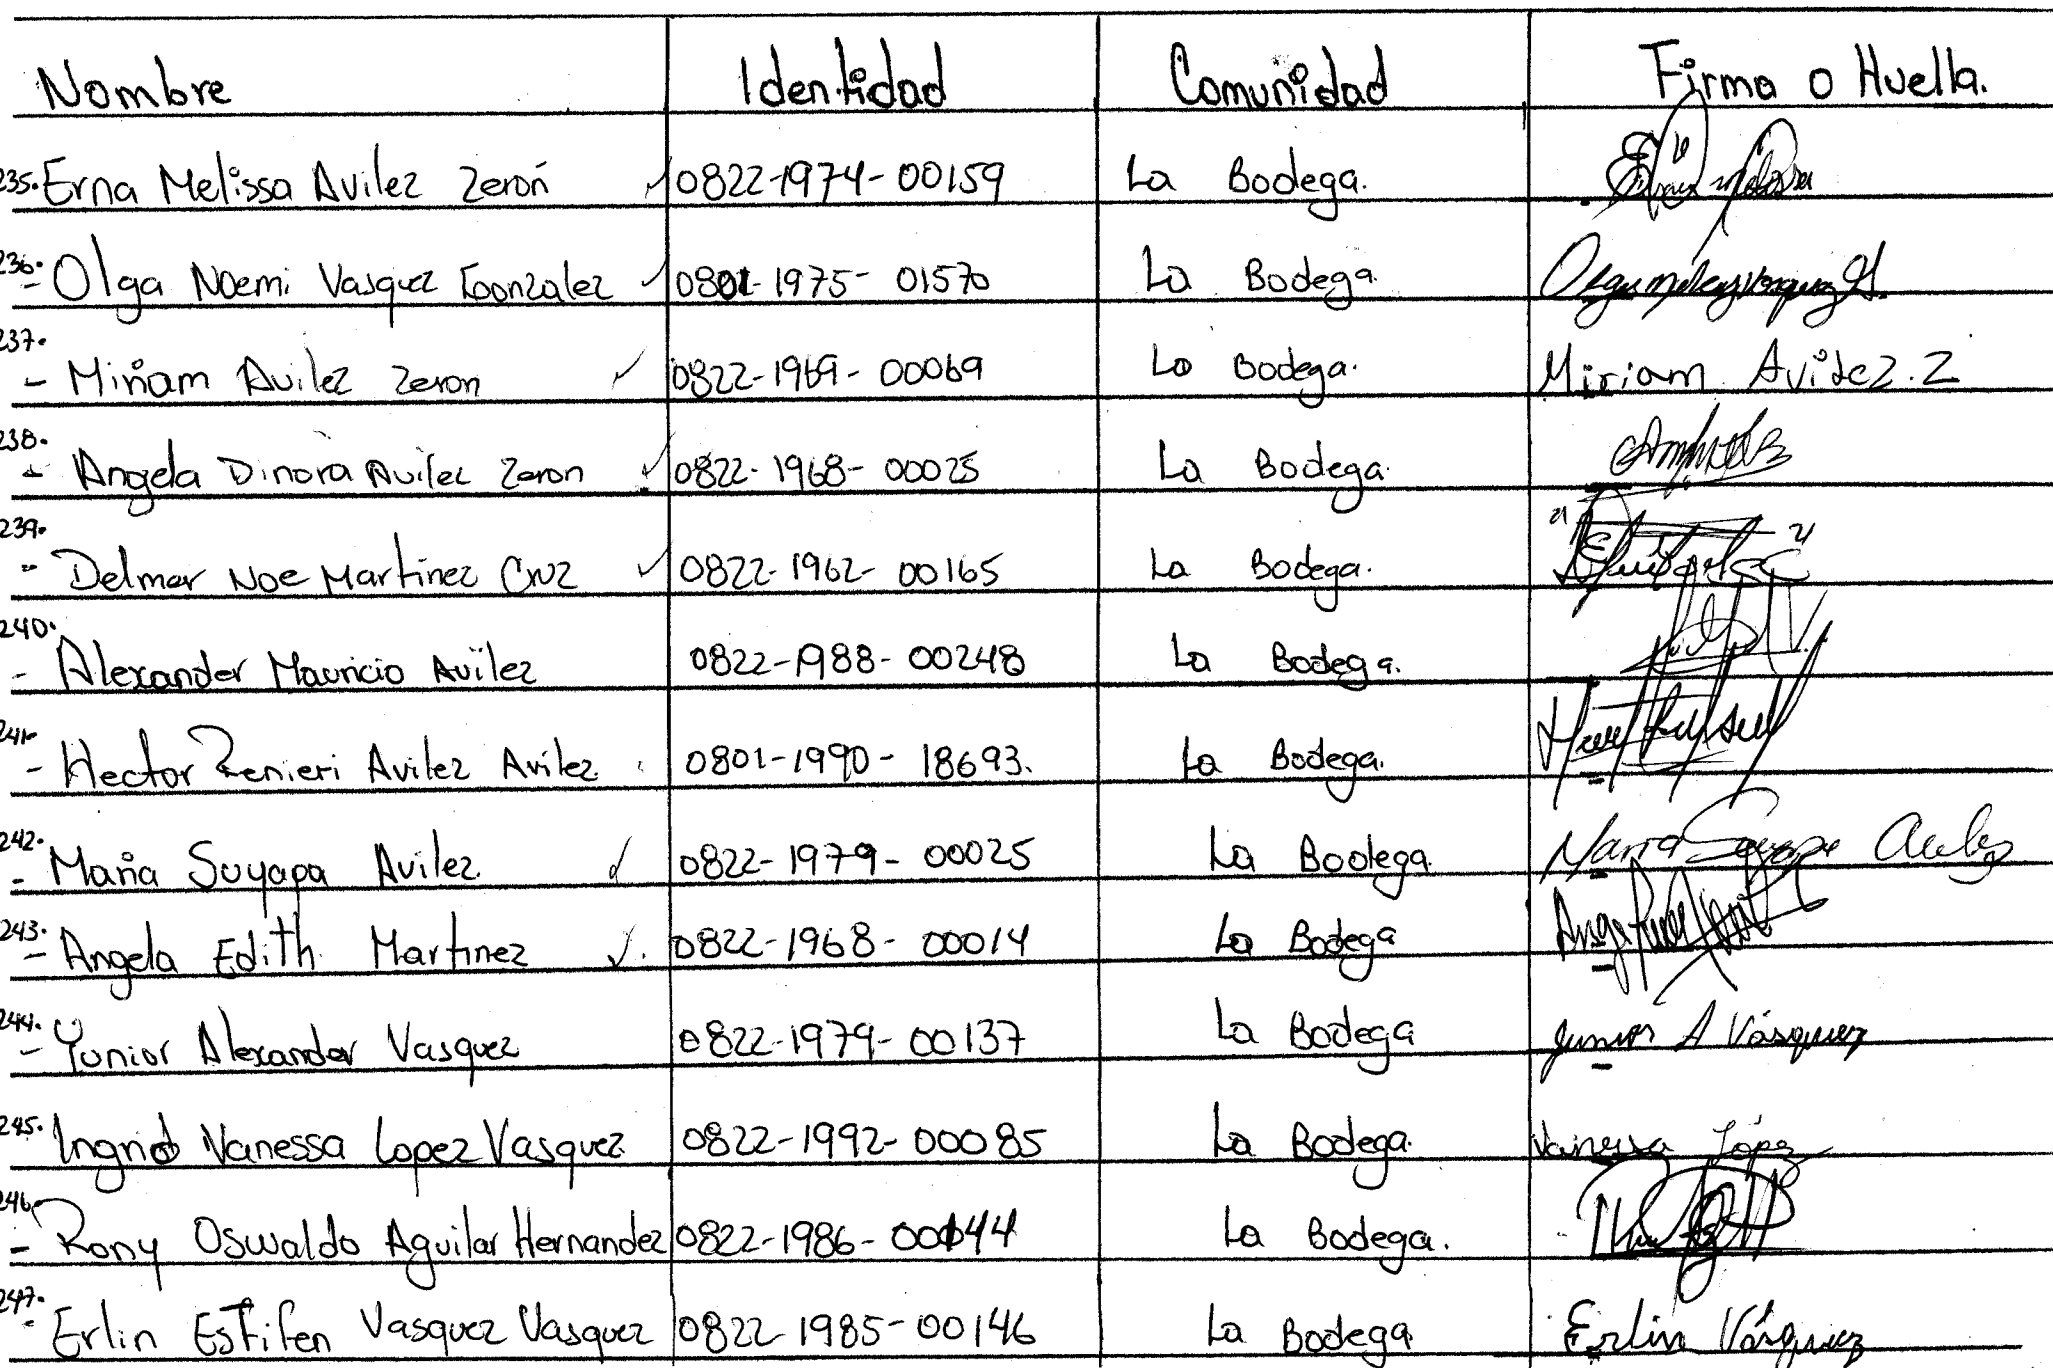 Nombre Identidad Comunidad Firma o Huella.
235. Erna Melissa Avilez Zerón 0822-1974-00159 La Bodega.
236. - Olga Noemi Vasquez Gonzalez 0801-1975-01570 La Bodega.
237. - Miriam Avilez Zeron 0822-1969-00069 La Bodega. Miriam Avilez.Z
238. - Angela Dinora Avilez Zeron 0822-1968-00025 La Bodega.
239. - Delmar Noe Martinez Cruz 0822-1962-00165 La Bodega.
240. - Alexander Mauricio Avilez 0822-1988-00248 La Bodega.
241. - Hector Renieri Avilez Avilez 0801-1990-18693. La Bodega.
242. - Maria Suyapa Avilez 0822-1979-00025 La Bodega. Maria Suyapa Avilez
243. - Angela Edith Martinez 0822-1968-00014 La Bodega
244. - Yunior Alexander Vasquez 0822-1979-00137 La Bodega Junior A Vásquez
245. - Ingrid Vanessa Lopez Vasquez 0822-1992-00085 La Bodega. Vanessa López
246. - Rony Oswaldo Aguilar Hernandez 0822-1986-00144 La Bodega.
247. - Erlin Estifen Vasquez Vasquez 0822-1985-00146 La Bodega Erlin Vásquez